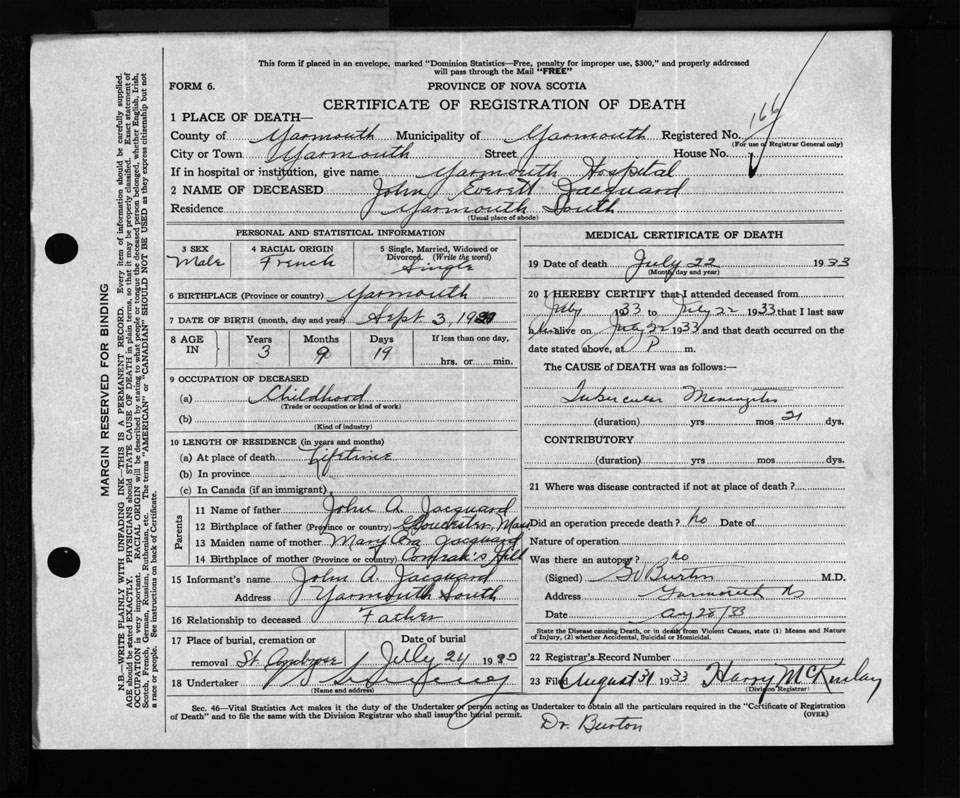 This form if placed in an envelope, marked "Dominion Statistics—Free, penalty for improper use, $300," and properly addressed
will pass through the Mail "FREE"
FORM 6.
PROVINCE OF NOVA SCOTIA
CERTIFICATE OF REGISTRATION OF DEATH
166
1 PLACE OF DEATH—
County of Yarmouth Municipality of Yarmouth Registered No.
(For use of Registrar General only)
City or Town Yarmouth Street House No.
If in hospital or institution, give name Yarmouth Hospital
2 NAME OF DECEASED John Everett Jacquard
Residence Yarmouth South
(Usual place of abode)
PERSONAL AND STATISTICAL INFORMATION
3 SEX Male
4 RACIAL ORIGIN French
5 Single, Married, Widowed or Divorced. (Write the word) Single
6 BIRTHPLACE (Province or country) Yarmouth
7 DATE OF BIRTH (month, day and year) Sept 3, 1929
8 AGE IN
Years Months Days If less than one day,
3 9 19 hrs. or min.
9 OCCUPATION OF DECEASED
(a) Childhood
(Trade or occupation or kind of work)
(b)
(Kind of industry)
10 LENGTH OF RESIDENCE (in years and months)
(a) At place of death Lifetime
(b) In province
(c) In Canada (if an immigrant)
Parents
11 Name of father John A. Jacquard
12 Birthplace of father (Province or country) Gloucester, Mass
13 Maiden name of mother Mary Jacquard
14 Birthplace of mother (Province or country) Comeau's Hill
15 Informant's name John A. Jacquard
Address Yarmouth South
16 Relationship to deceased Father
17 Place of burial, cremation or Date of burial
removal St. Ambrose July 24 19
18 Undertaker
(Name and address)
MEDICAL CERTIFICATE OF DEATH
19 Date of death July 22 1933
(Month, day and year)
20 I HEREBY CERTIFY that I attended deceased from
July 1933 to July 22 1933 that I last saw
him alive on July 22 1933 and that death occurred on the
date stated above, at P m.
The CAUSE of DEATH was as follows:—
Tubercular Meningitis
(duration) yrs mos 21 dys.
CONTRIBUTORY
(duration) yrs mos dys.
21 Where was disease contracted if not at place of death?
Did an operation precede death? no Date of
Nature of operation
Was there an autopsy? no
(Signed) Burton M.D.
Address Yarmouth NS
Date Aug 28/33
State the Disease causing Death, or in death from Violent Causes, state (1) Means and Nature
of Injury, (2) whether Accidental, Suicidal or Homicidal.
22 Registrar's Record Number
23 Filed August 31 1933 Harry McKinlay
(Division Registrar)
Sec. 46—Vital Statistics Act makes it the duty of the Undertaker or person acting as Undertaker to obtain all the particulars required in the "Certificate of Registration
of Death" and to file the same with the Division Registrar who shall issue the burial permit. (OVER)
Dr. Burton
MARGIN RESERVED FOR BINDING
N.B.—WRITE PLAINLY WITH UNFADING INK—THIS IS A PERMANENT RECORD. Every item of information should be carefully supplied.
AGE should be stated EXACTLY. PHYSICIANS should STATE CAUSE OF DEATH in plain terms, so that it may be properly classified. Exact statement of
OCCUPATION is very important. RACIAL ORIGIN will be described by stating to what people or tongue the deceased person belonged, whether English, Irish,
Scotch, French, German, Russian, Ruthenian, etc. The terms "AMERICAN" or "CANADIAN" SHOULD NOT BE USED as they express citizenship but not
a race or people. See instructions on back of Certificate.